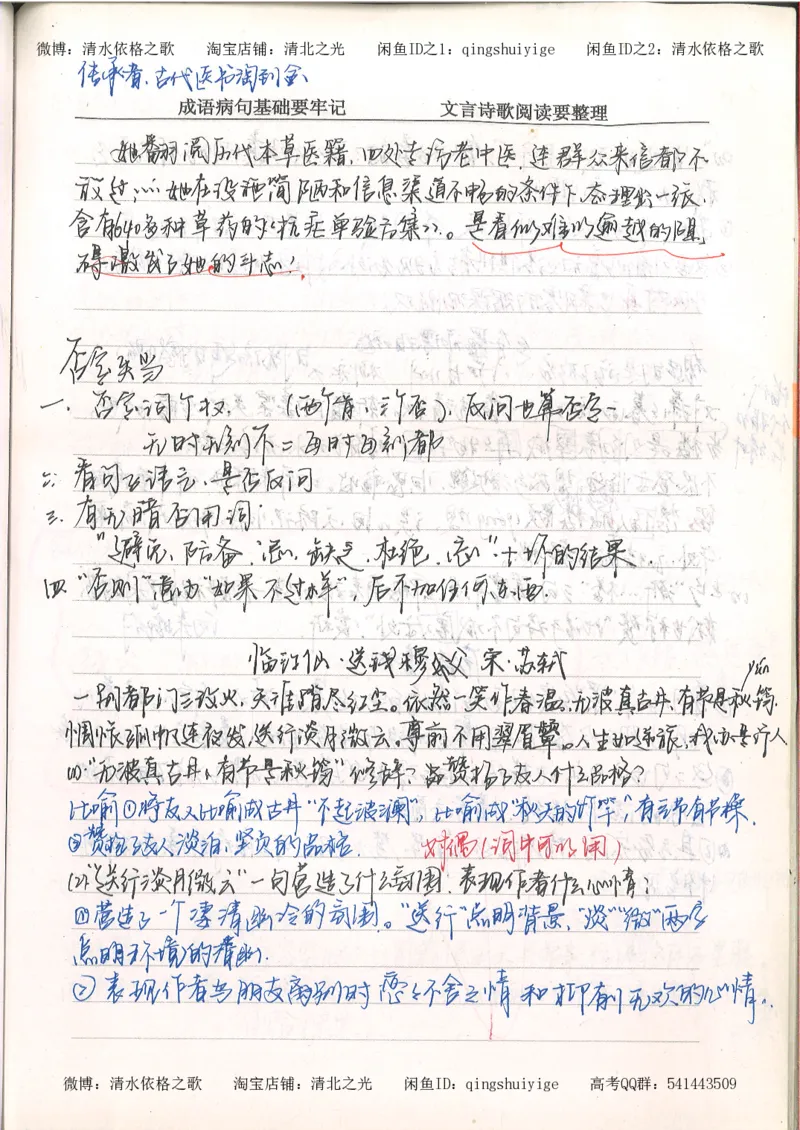 微博：清水依格之歌 淘宝店铺：清北之光 闲鱼ID之1：qingshuiyige 闲鱼ID之2：清水依格之歌
传承者、古代医书淘到金
成语病句基础要牢记 文言诗歌阅读要整理
她翻阅历代本草医籍，四处走访老中医，连群众来信都不
放过……她在设施简陋和信息渠道不畅的条件下，整理出一张
含有640多种草药的《抗疟单验方集》。是看似难以逾越的阻
碍激发了她的斗志！
否定失当
一、否定词个数，（两个肯 三个否），反问也算否定一
无时无刻不=每时每刻都
二、看句子语言，是否反问
三、有无暗否用词：
“避免、防备、忌、缺乏、杜绝、忘”+坏的结果
四、“否则”意为“如果不这样”，后不加任何东西
临江仙·送钱穆父 宋·苏轼
一别都门三改火，天涯踏尽红尘。依然一笑作春温，无波真古井，有节是秋筠。
惆怅孤帆连夜发，送行淡月微云。尊前不用翠眉颦。人生如逆旅，我亦是行人
⑴“无波真古井，有节是秋筠”修辞？品赞扬了友人什么品格？
比喻①将友人比喻成古井“不起波澜”，比喻成“秋天的竹竿”，有志节有节操。
②赞扬了友人淡泊、坚贞的品格. 对偶（词中可以用）
⑵“送行淡月微云”一句营造了什么氛围，表现作者什么心情？
①营造了一个凄清幽冷的氛围。“送行”点明背景，“淡”“微”两字
点明环境的清幽.
②表现作者与朋友离别时恋恋不舍之情和抑郁无欢的心情。
微博：清水依格之歌 淘宝店铺：清北之光 闲鱼ID：qingshuiyige 高考QQ群：541443509